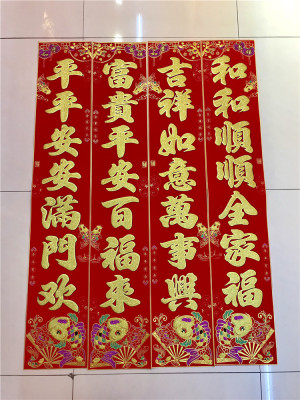 和和順順全家福
吉祥如意萬事興
富貴平安百福來
平平安安滿門欢